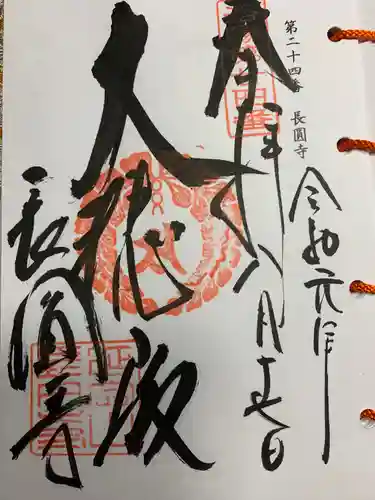 第二十四番 長圓寺
奉拝
令和元年
八月十七日
大悲殿
長圓寺